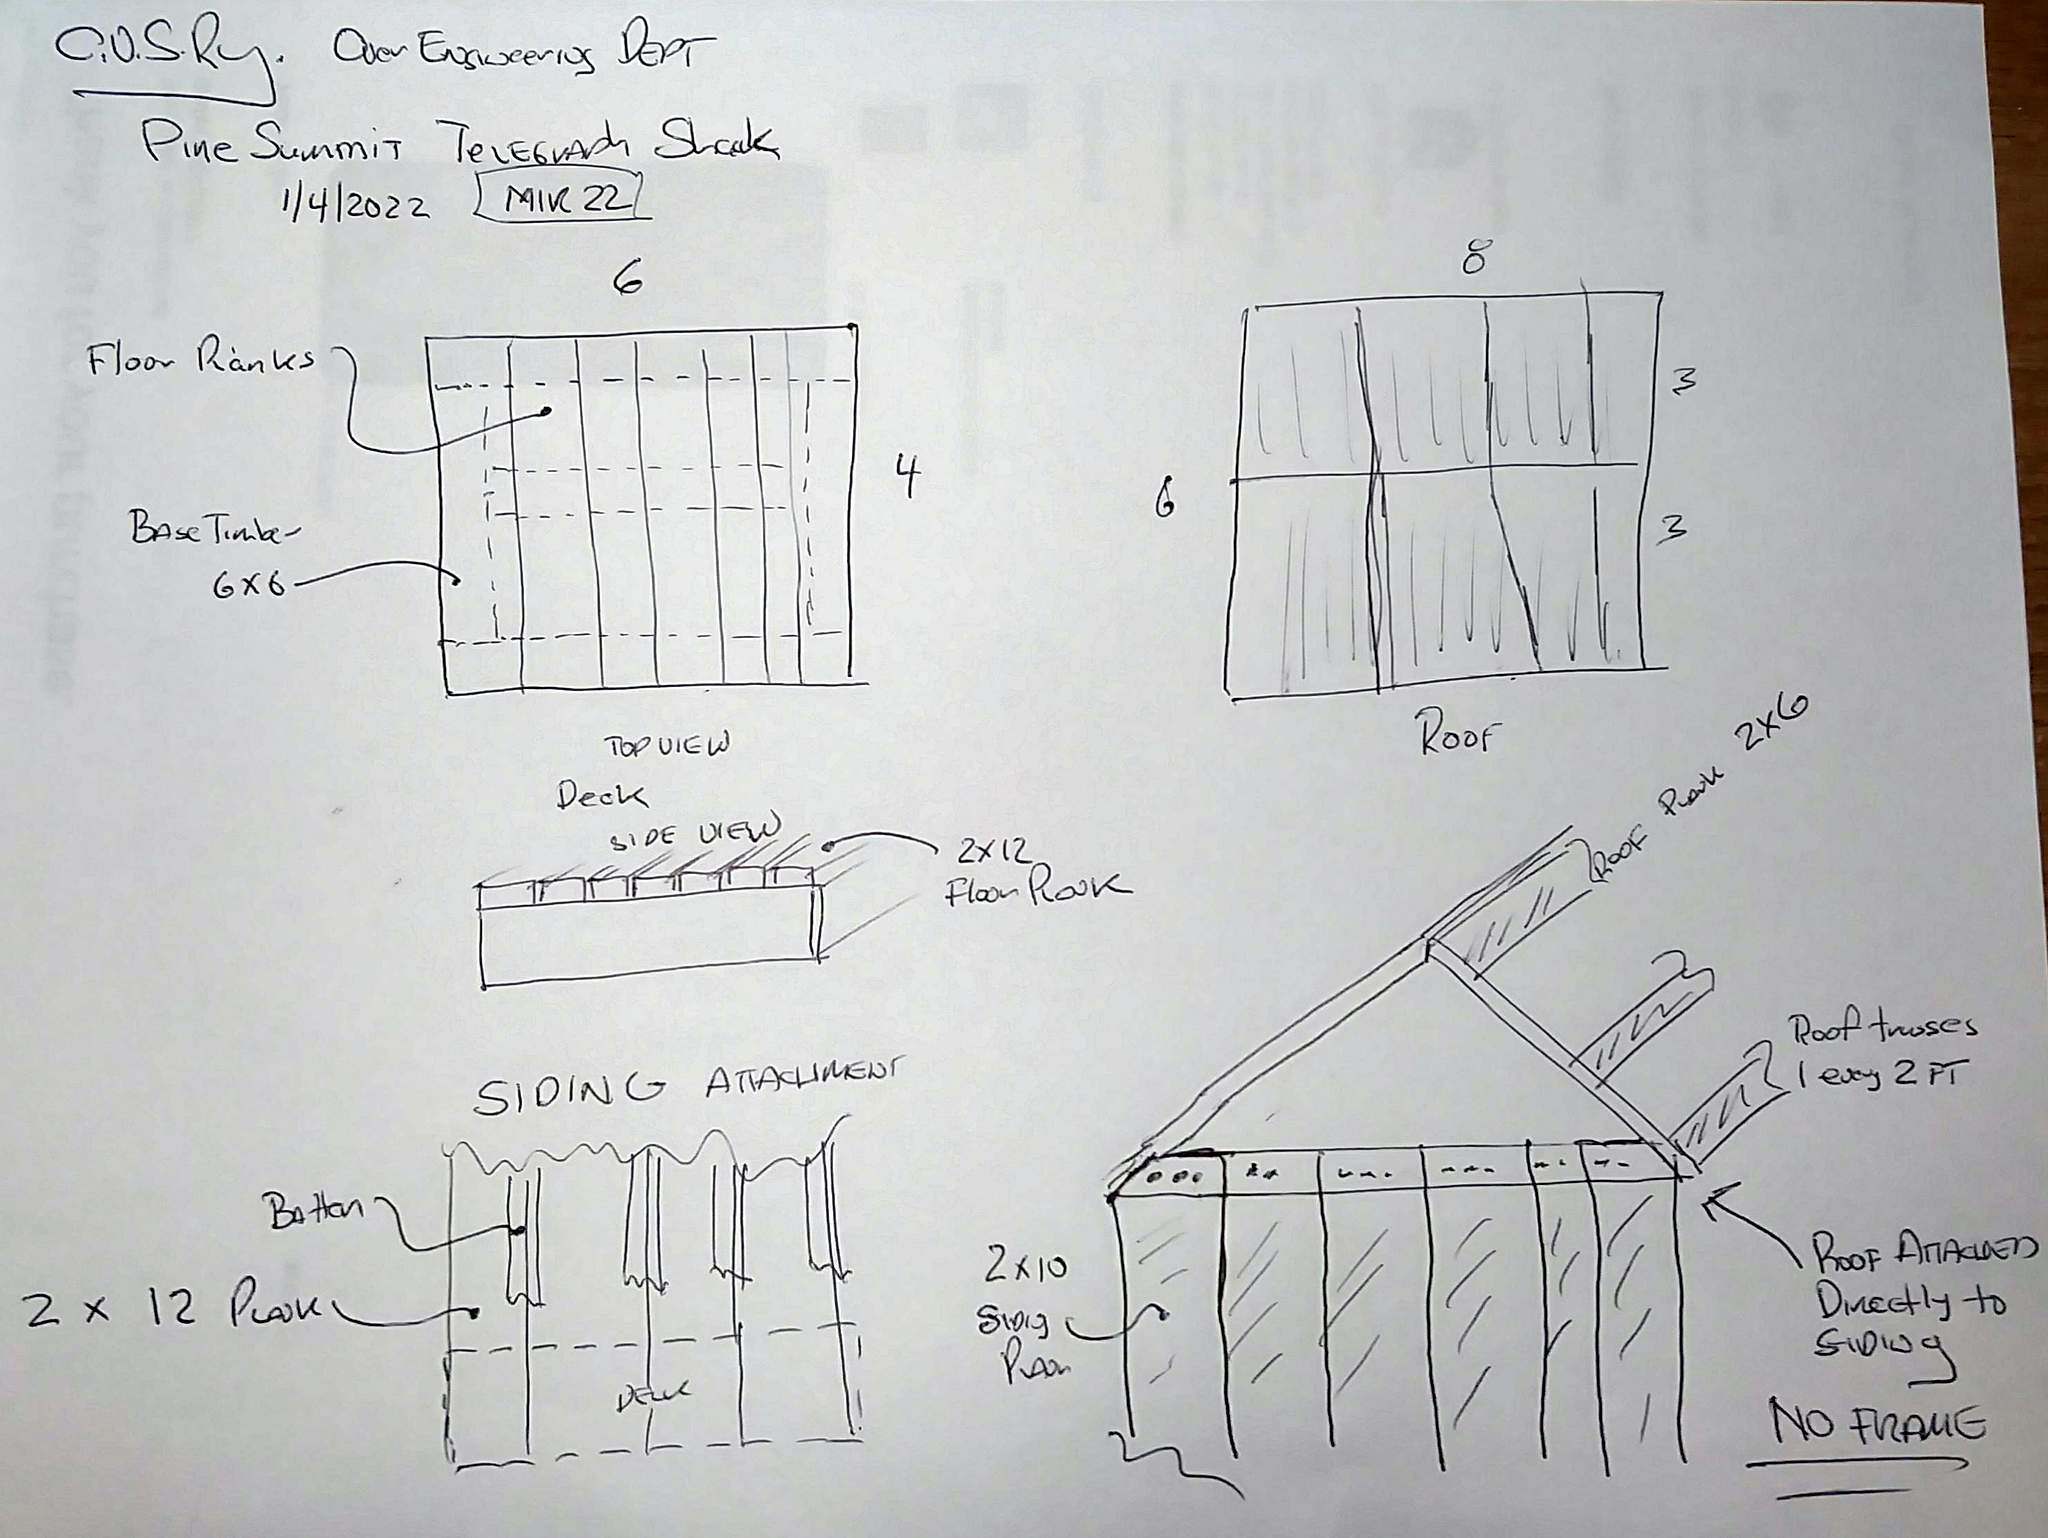 C.V.S.Ry. Over Engineering DEPT
Pine Summit Telegraph Shack
1/4/2022 MIK 22
6
Floor Planks
4
Base Timber
6x6
TOP VIEW
Deck
SIDE VIEW
2x12
Floor Plank
8
3
6
3
ROOF
Roof Plank 2x6
Roof truses
1 every 2 FT
SIDING ATTACHMENT
Batten
2 x 12 Plank
DECK
2x10
Siding
Plan
Roof ATTACHED
Directly to
SIDING
NO FRAME